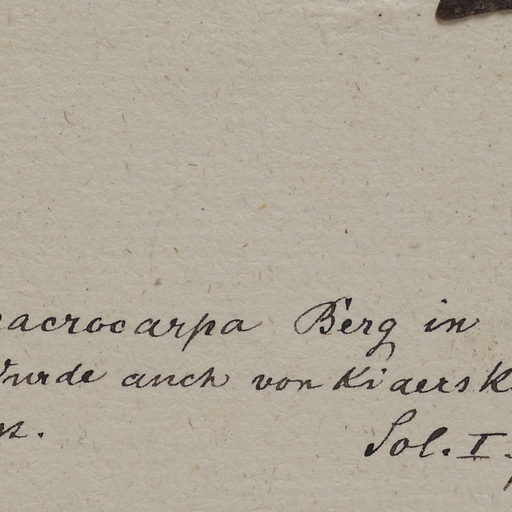 macrocarpa Berg in
Wurde auch von Kiaersk
Sol. I.